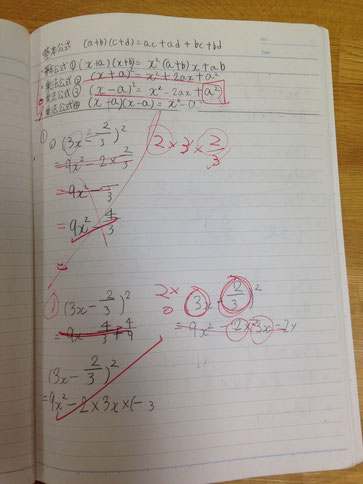 基本公式 (a+b)(c+d)=ac+ad+bc+bd
乗法公式① (x+a)(x+b)=x²(a+b)x+ab
乗法公式② (x+a)²=x²+2ax+a²
乗法公式③ (x-a)²=x²-2ax+a²
乗法公式④ (x+a)(x-a)=x²-
①
(3x-2/3)² 2×3×2/3
=9x²-2×2/3
=9x²-
=9x²-4/3
① (3x-2/3)²
=9x-4/3+4/9
2× (3x-2/3)²
=9x²-2×3x
(3x-2/3)²
=9x²-2×3x×(-3